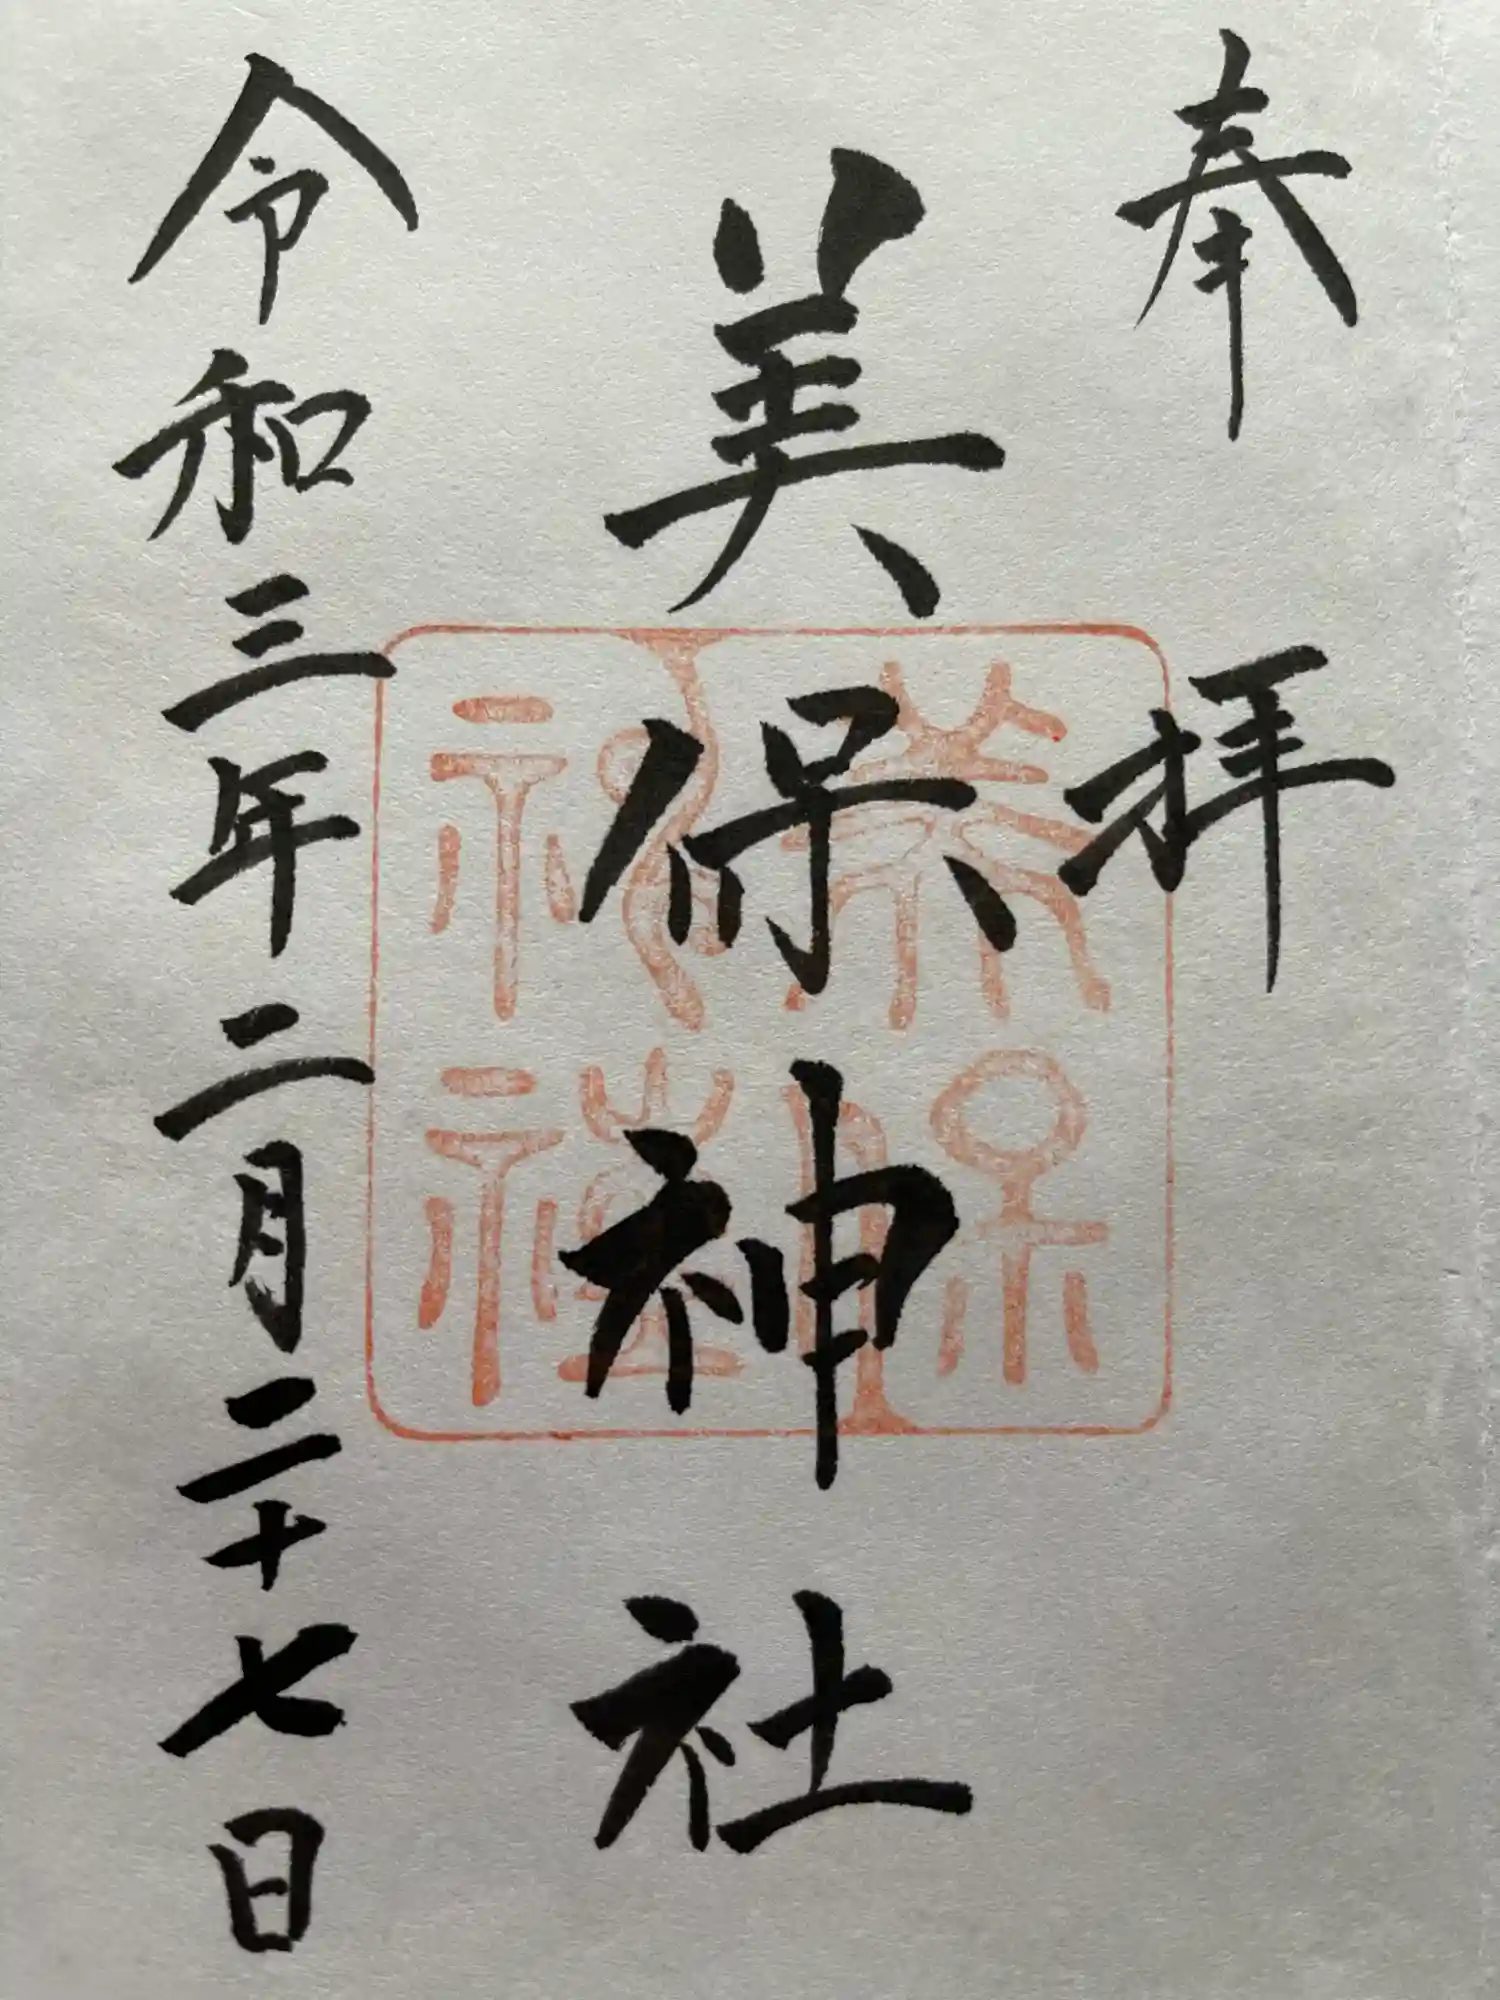 奉拝
美保神社
令和三年二月二十七日